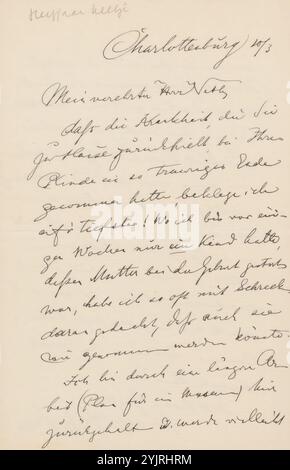 Charlottenburg 10/3
Mein verehrter Herr Veth,
daß die Krankheit, die Sie
zu Hause zurückhielt, bei Ihrem
Kinde ein so trauriges Ende
genommen hatte beklage ich
auf's tiefste! Wo ich bis vor eini-
gen Wochen nur ein Kind hatte
dessen Mutter bei der Geburt gestorben
war, habe ich so oft mit Schreck
daran gedacht, daß auch sie
mir genommen werden könnte
Ich bin durch eine längere Ar-
beit (Plan für ein Museum) hier
zurückgehalten u. werde vielleicht
alamy
Image ID: 2YJRHRM
www.alamy.com